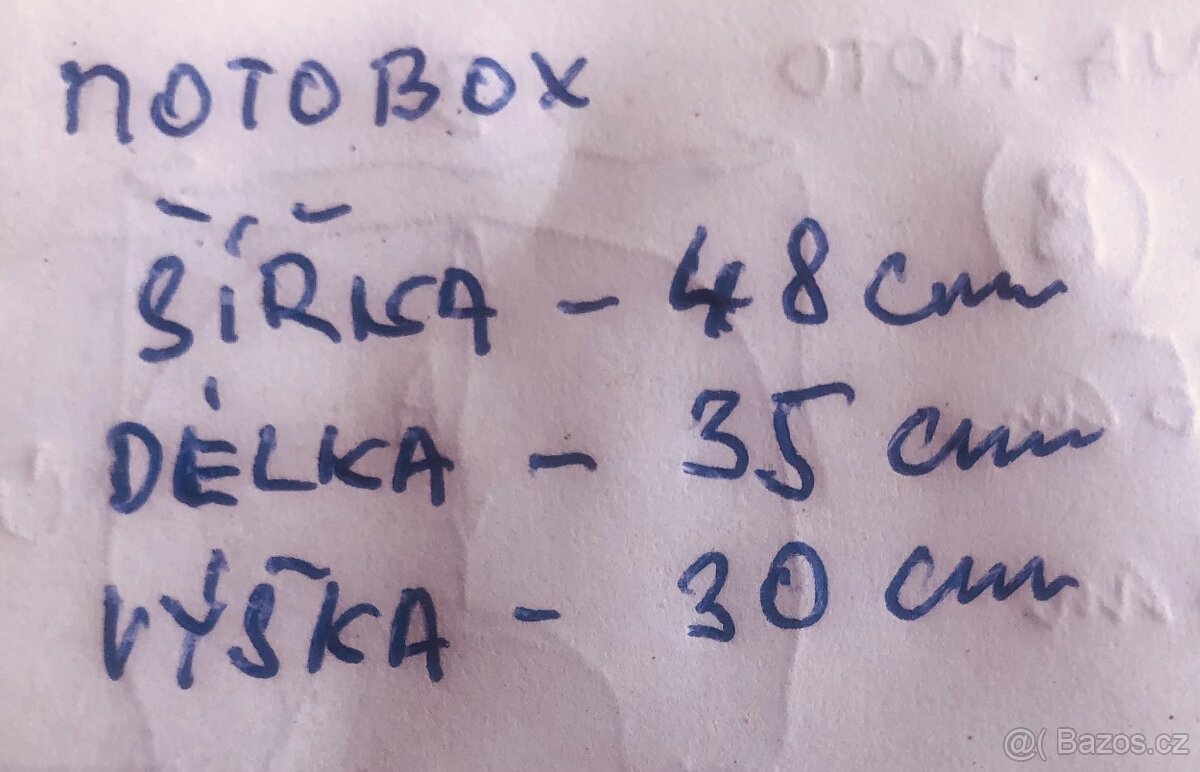 MOTOBOX
ŠÍŘKA - 48 cm
DÉLKA - 35 cm
VÝŠKA - 30 cm
@( Bazos.cz